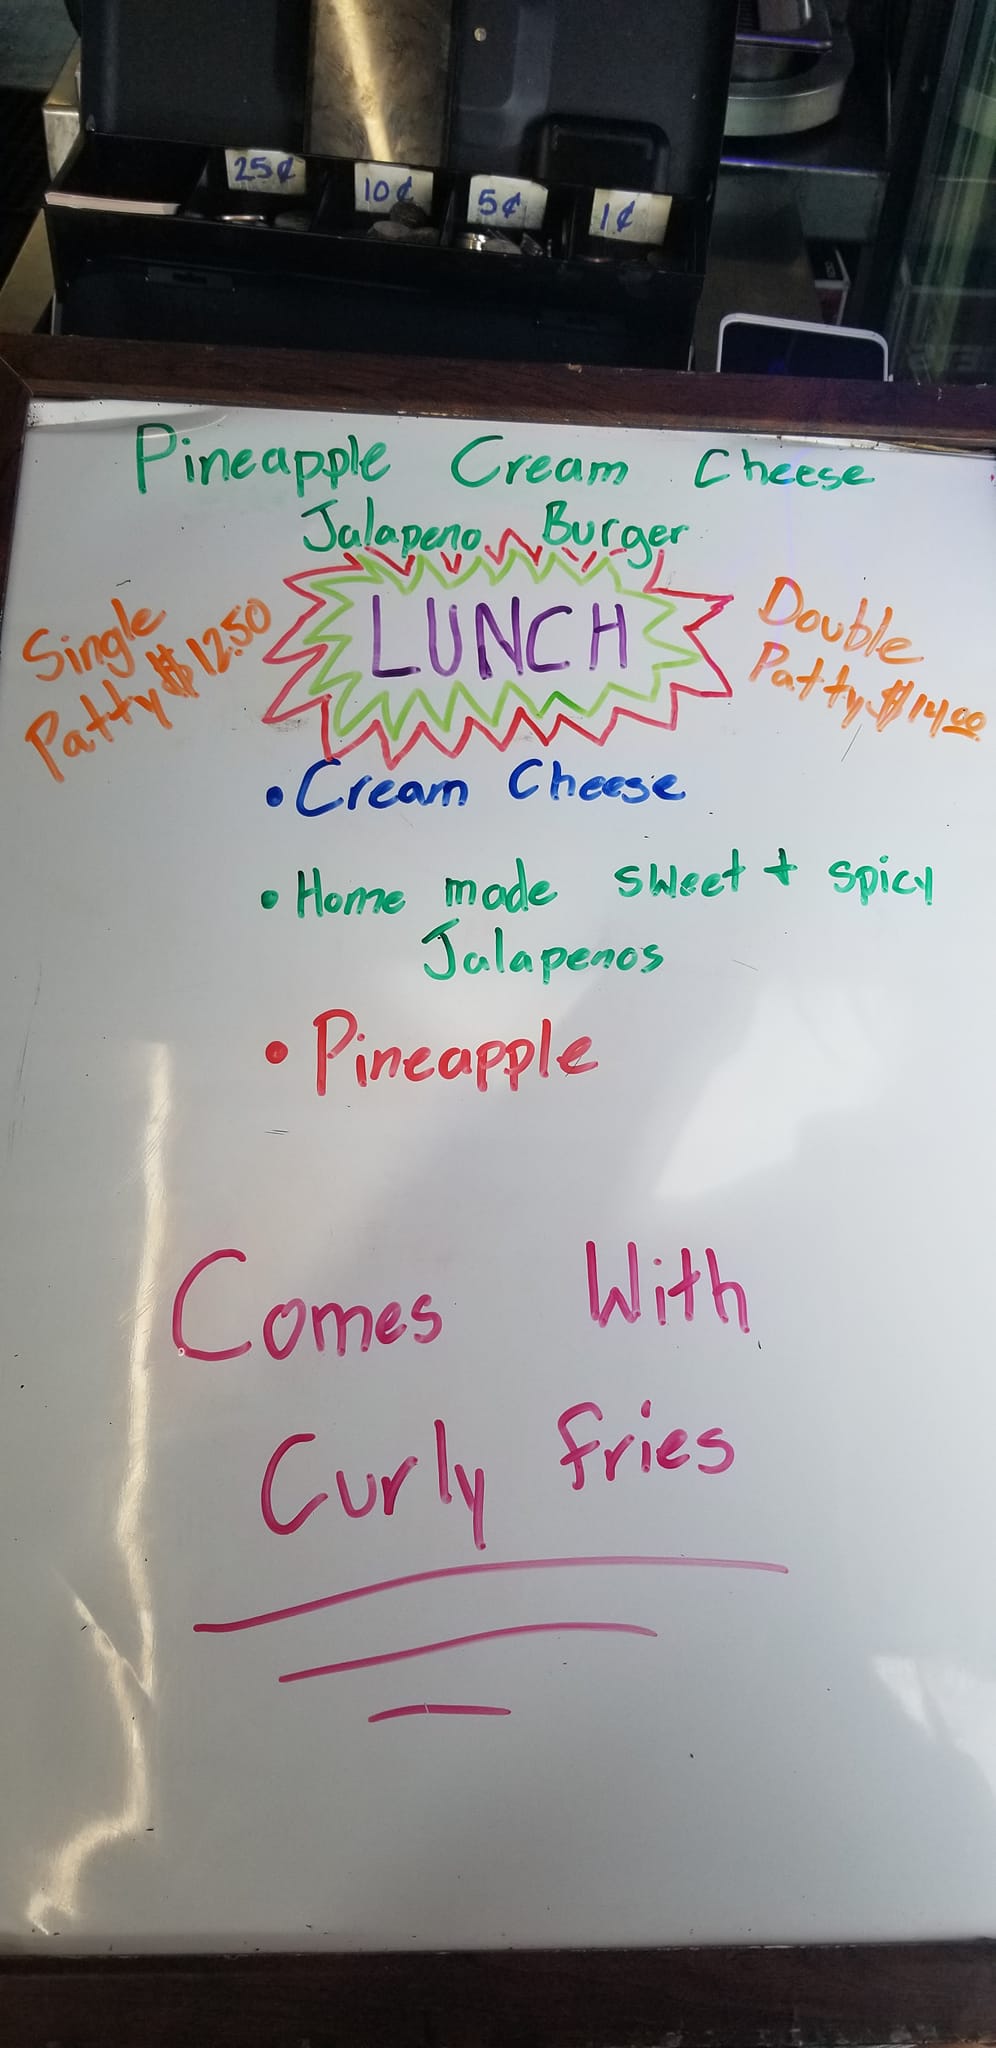 25¢
10¢
5¢
1¢
Pineapple Cream Cheese
Jalapeno Burger
LUNCH
Single
Patty $12.50
Double
Patty $14.00
• Cream Cheese
• Home made sweet + spicy
Jalapenos
• Pineapple
Comes With
Curly fries